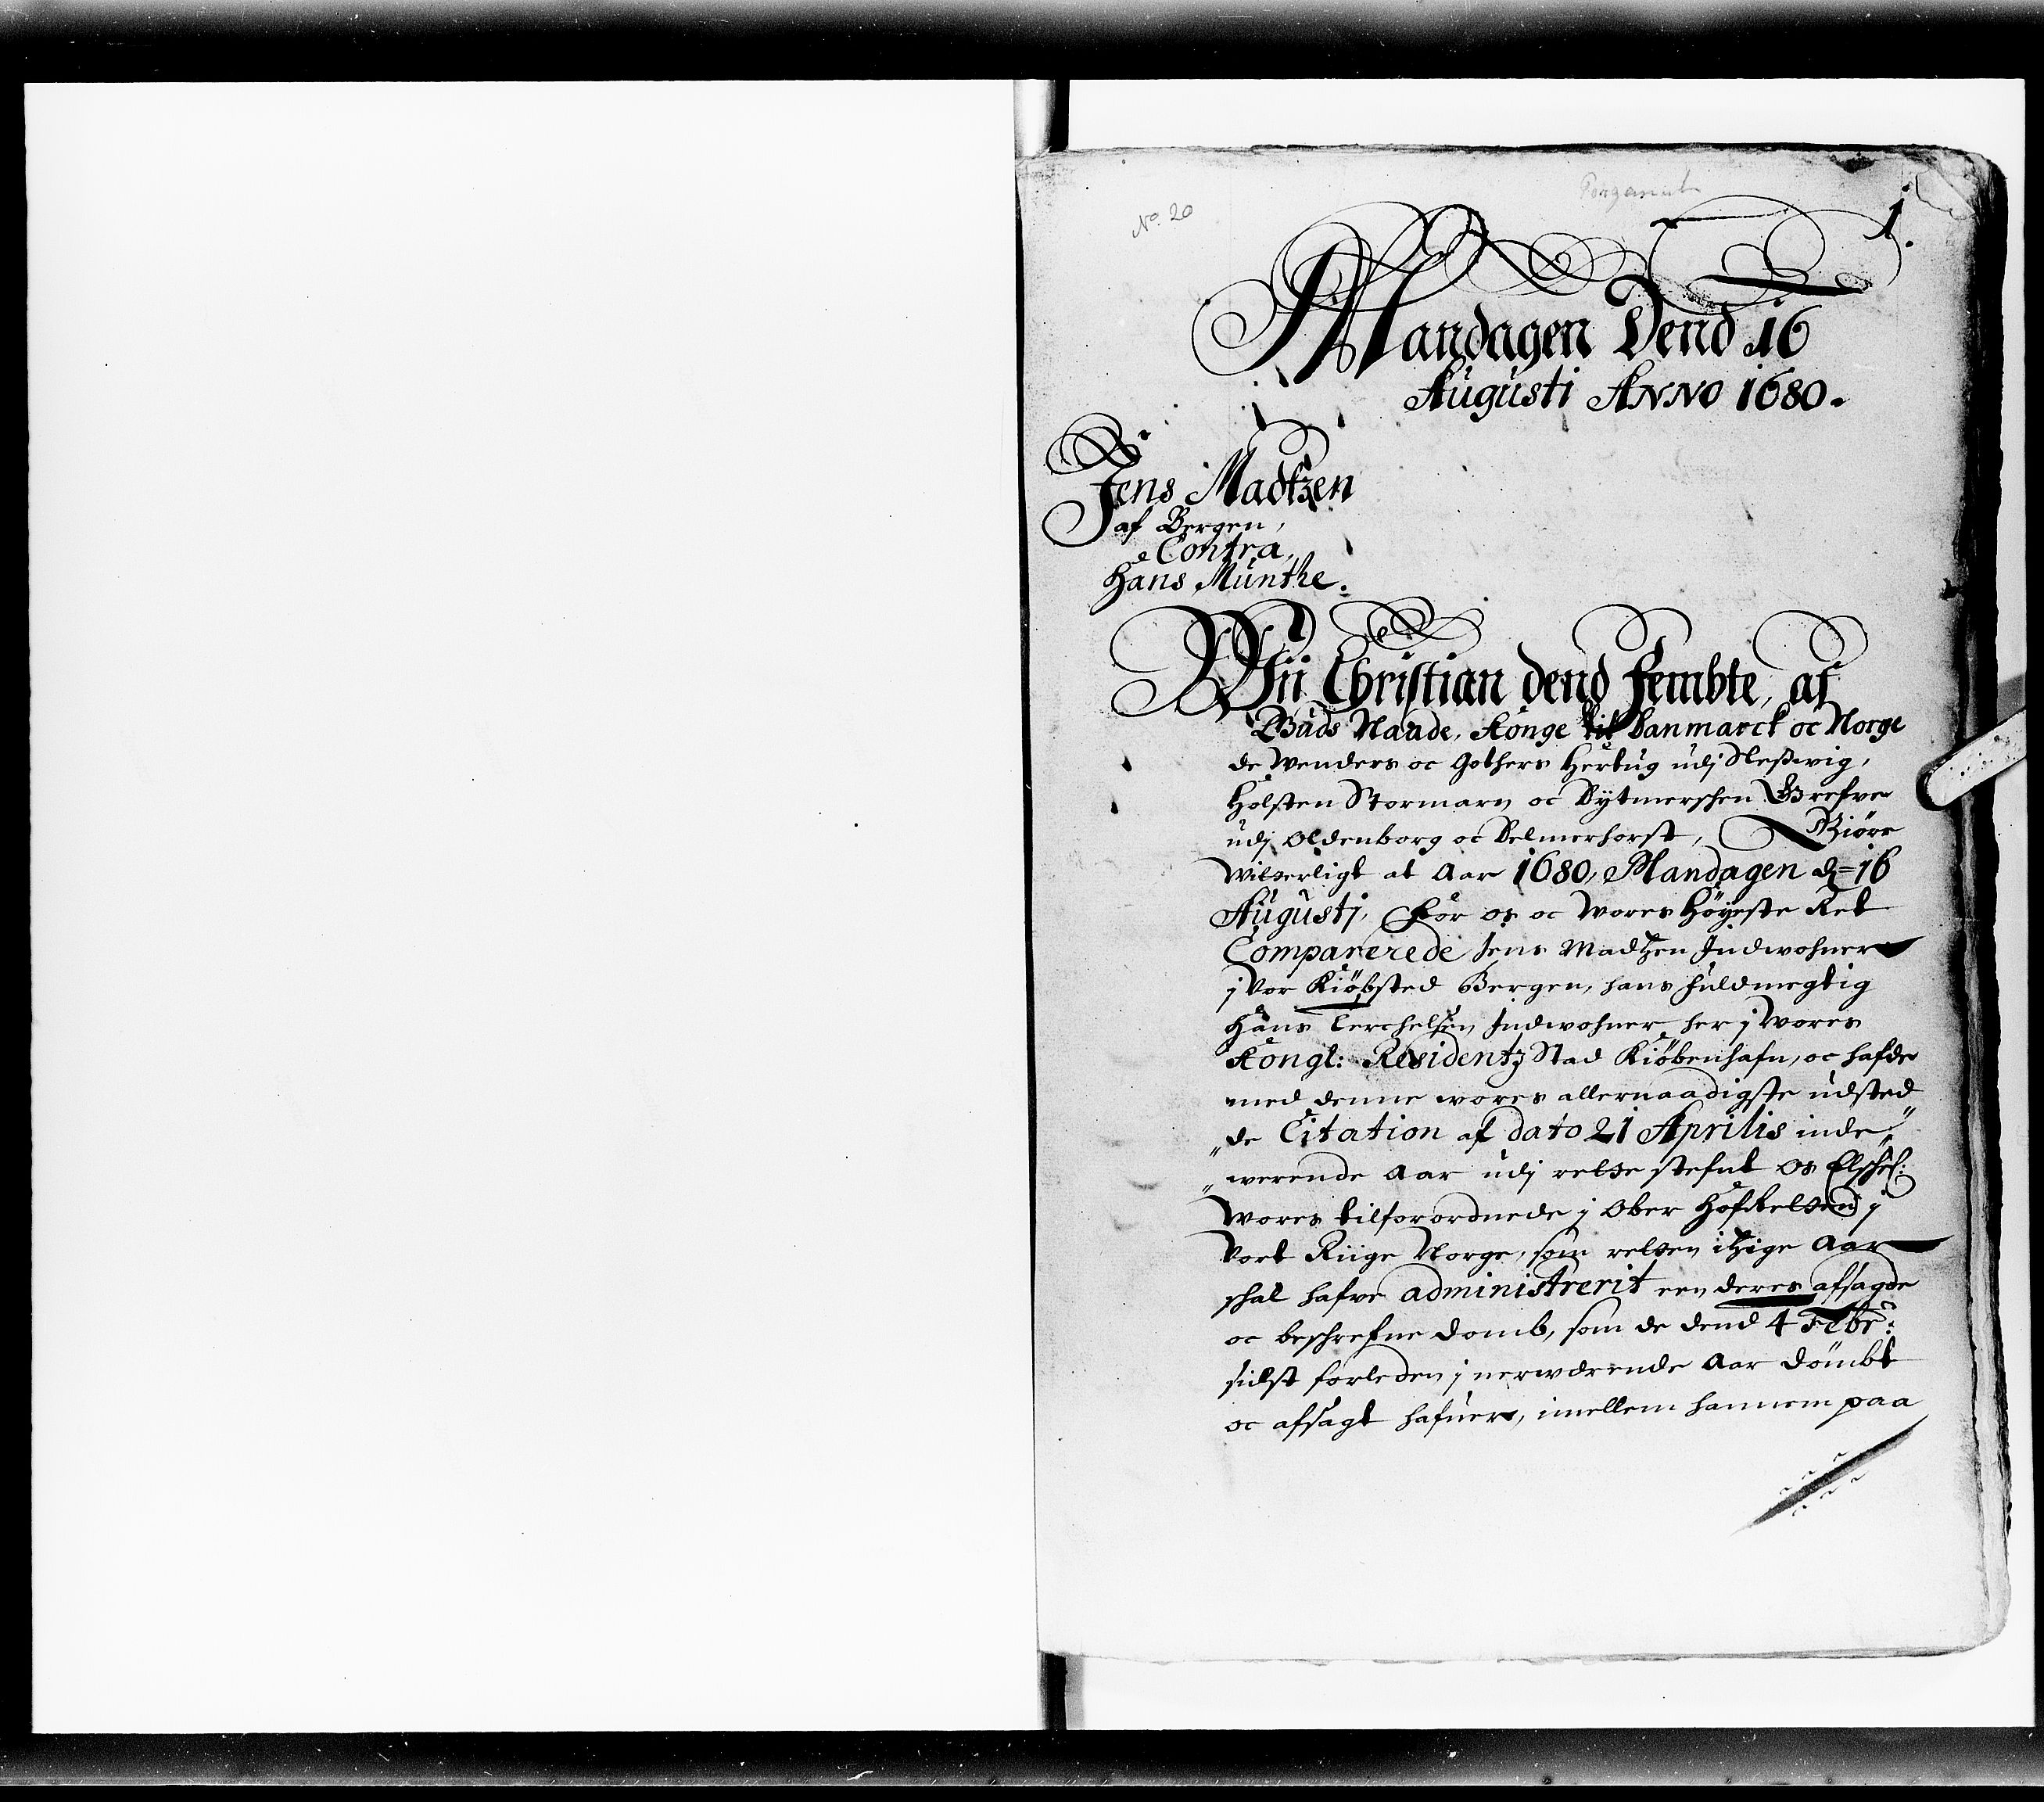 No. 20
1.
Mandagen Dend 16
Augusti ANNO 1680.
Jens Madtzen
af Bergen,
Contra,
Hans Munthe.
Wii Christian dend Fembte, af
Guds Naade, Konge til Danmarck oc Norge
de Wenders oc Gothers Hertug udj Slesswig,
Holsten Stormarn oc Dytmerschen Grefve
udj Oldenborg oc Delmenhorst, Giøre
Witterligt at Aar 1680, Mandagen d= 16
Augustj, For os oc Wores Høyeste Ret
Comparerede Jens Madtzen Indwohner
j Vor Kiøbsted Bergen, hans fuldmegtig
Hans Terchelsen Indwohner her j Wores
Kongl: Residentz Stad Kiøbenhafn, oc hafde
med denne wores allernaadigste udsted
de Citation af dato 21 Aprilis inde
werende Aar udj rette stefnt Os Elschel:
Wores tilforordnede j Ober Hofretten j
Vort Riige Norge, som retten ithige Aar
schal hafve administrerit een deres afsagde
oc beschrefne domb, som de dend 4 Febr:
sidst forleden j nerwærende Aar dømbt
oc afsagt hafuer, imellem hannem paa